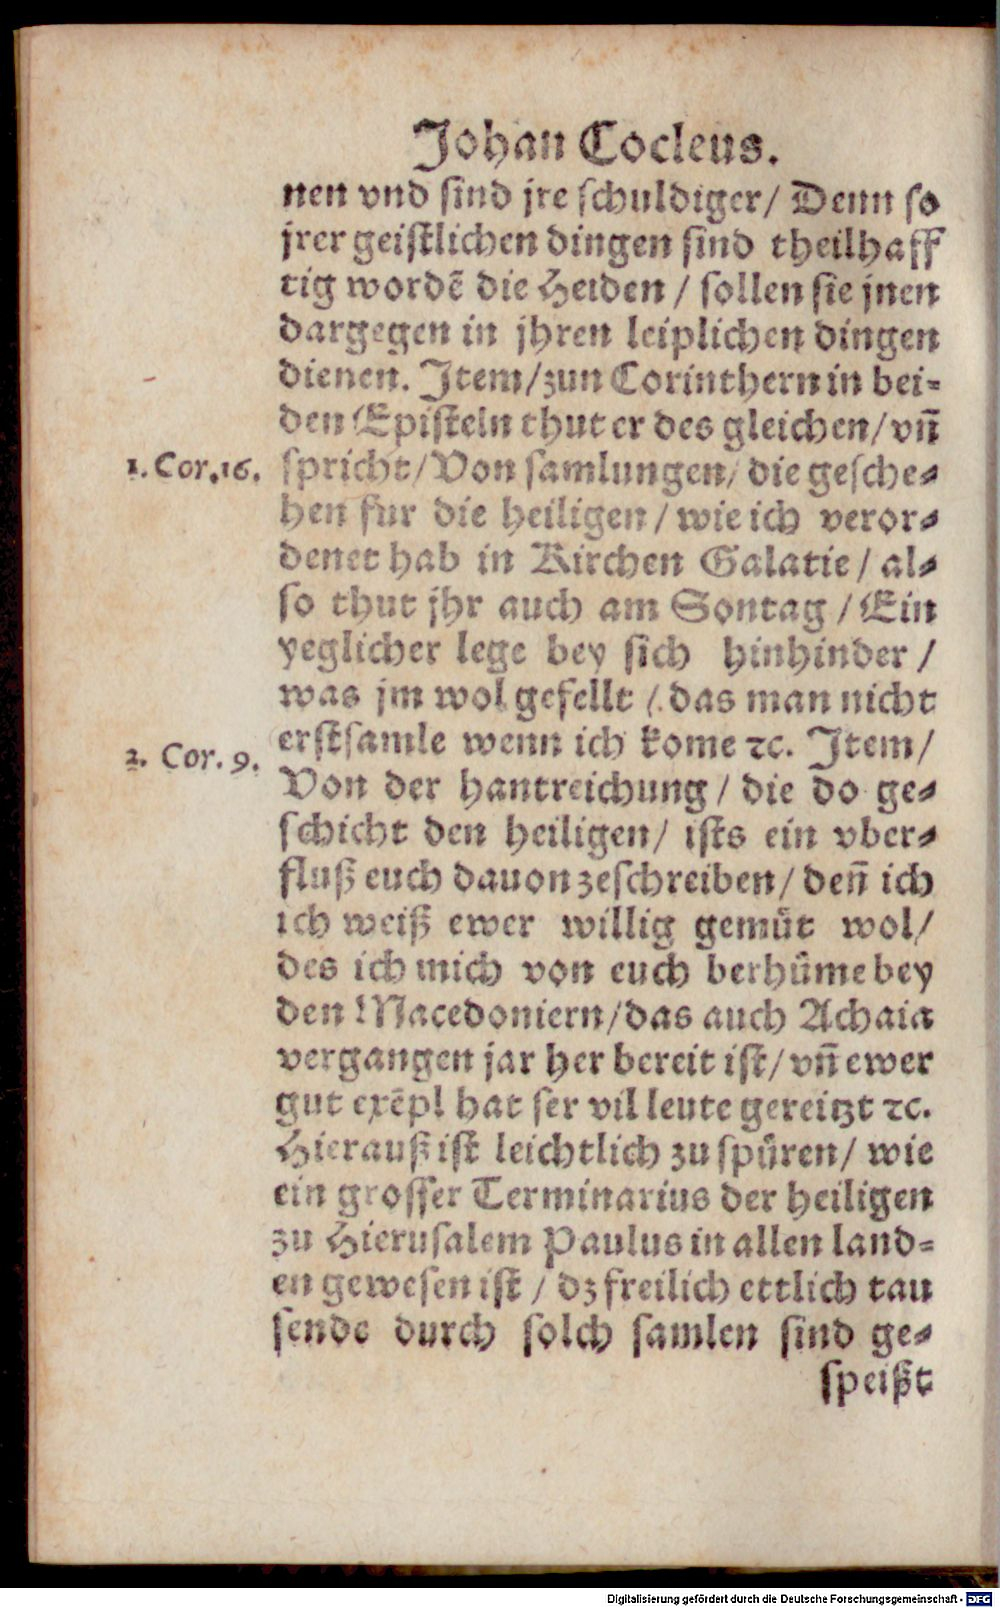 Johan Cocleus.
nen vnd sind jre schuldiger/ Denn so
jrer geistlichen dingen sind theilhaff
tig wordē die Heiden / sollen sie jnen
dargegen in jhren leiplichen dingen
dienen. Item/zun Corinthern in bei-
den Episteln thut er des gleichen/ vñ
1. Cor.16. spricht/Von samlungen/ die gesche-
hen fur die heiligen / wie ich veror-
denet hab in Kirchen Galatie / al-
so thut jhr auch am Sontag / Ein
yeglicher lege bey sich hinhinder /
was jm wol gefellt / das man nicht
erst samle wenn ich kome ꝛc. Item/
2. Cor. 9. Von der hantreichung / die do ge-
schicht den heiligen/ ists ein vber-
fluß euch dauon zeschreiben/ deñ ich
ich weiß ewer willig gemuͤt wol/
des ich mich von euch berhuͤme bey
den Macedoniern/das auch Achaia
vergangen jar her bereit ist/ vñ ewer
gut exēpl hat ser vil leute gereitzt ꝛc.
Hierauß ist leichtlich zu spuͤren/ wie
ein grosser Terminarius der heiligen
zu Hierusalem Paulus in allen land-
en gewesen ist / dz freilich ettlich tau
sende durch solch samlen sind ge-
speißt
Digitalisierung gefördert durch die Deutsche Forschungsgemeinschaft - DFG